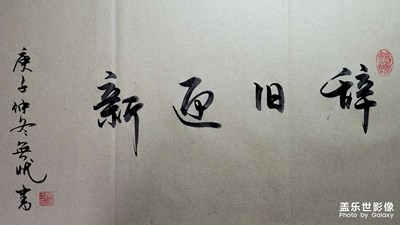 辞旧迎新
庚子仲冬無忧书
盖乐世影像
Photo by Galaxy